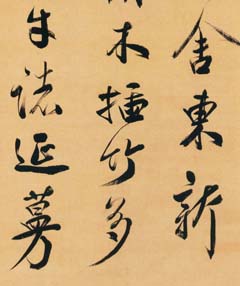 舍東新
木插竹多
牛諸延蔓